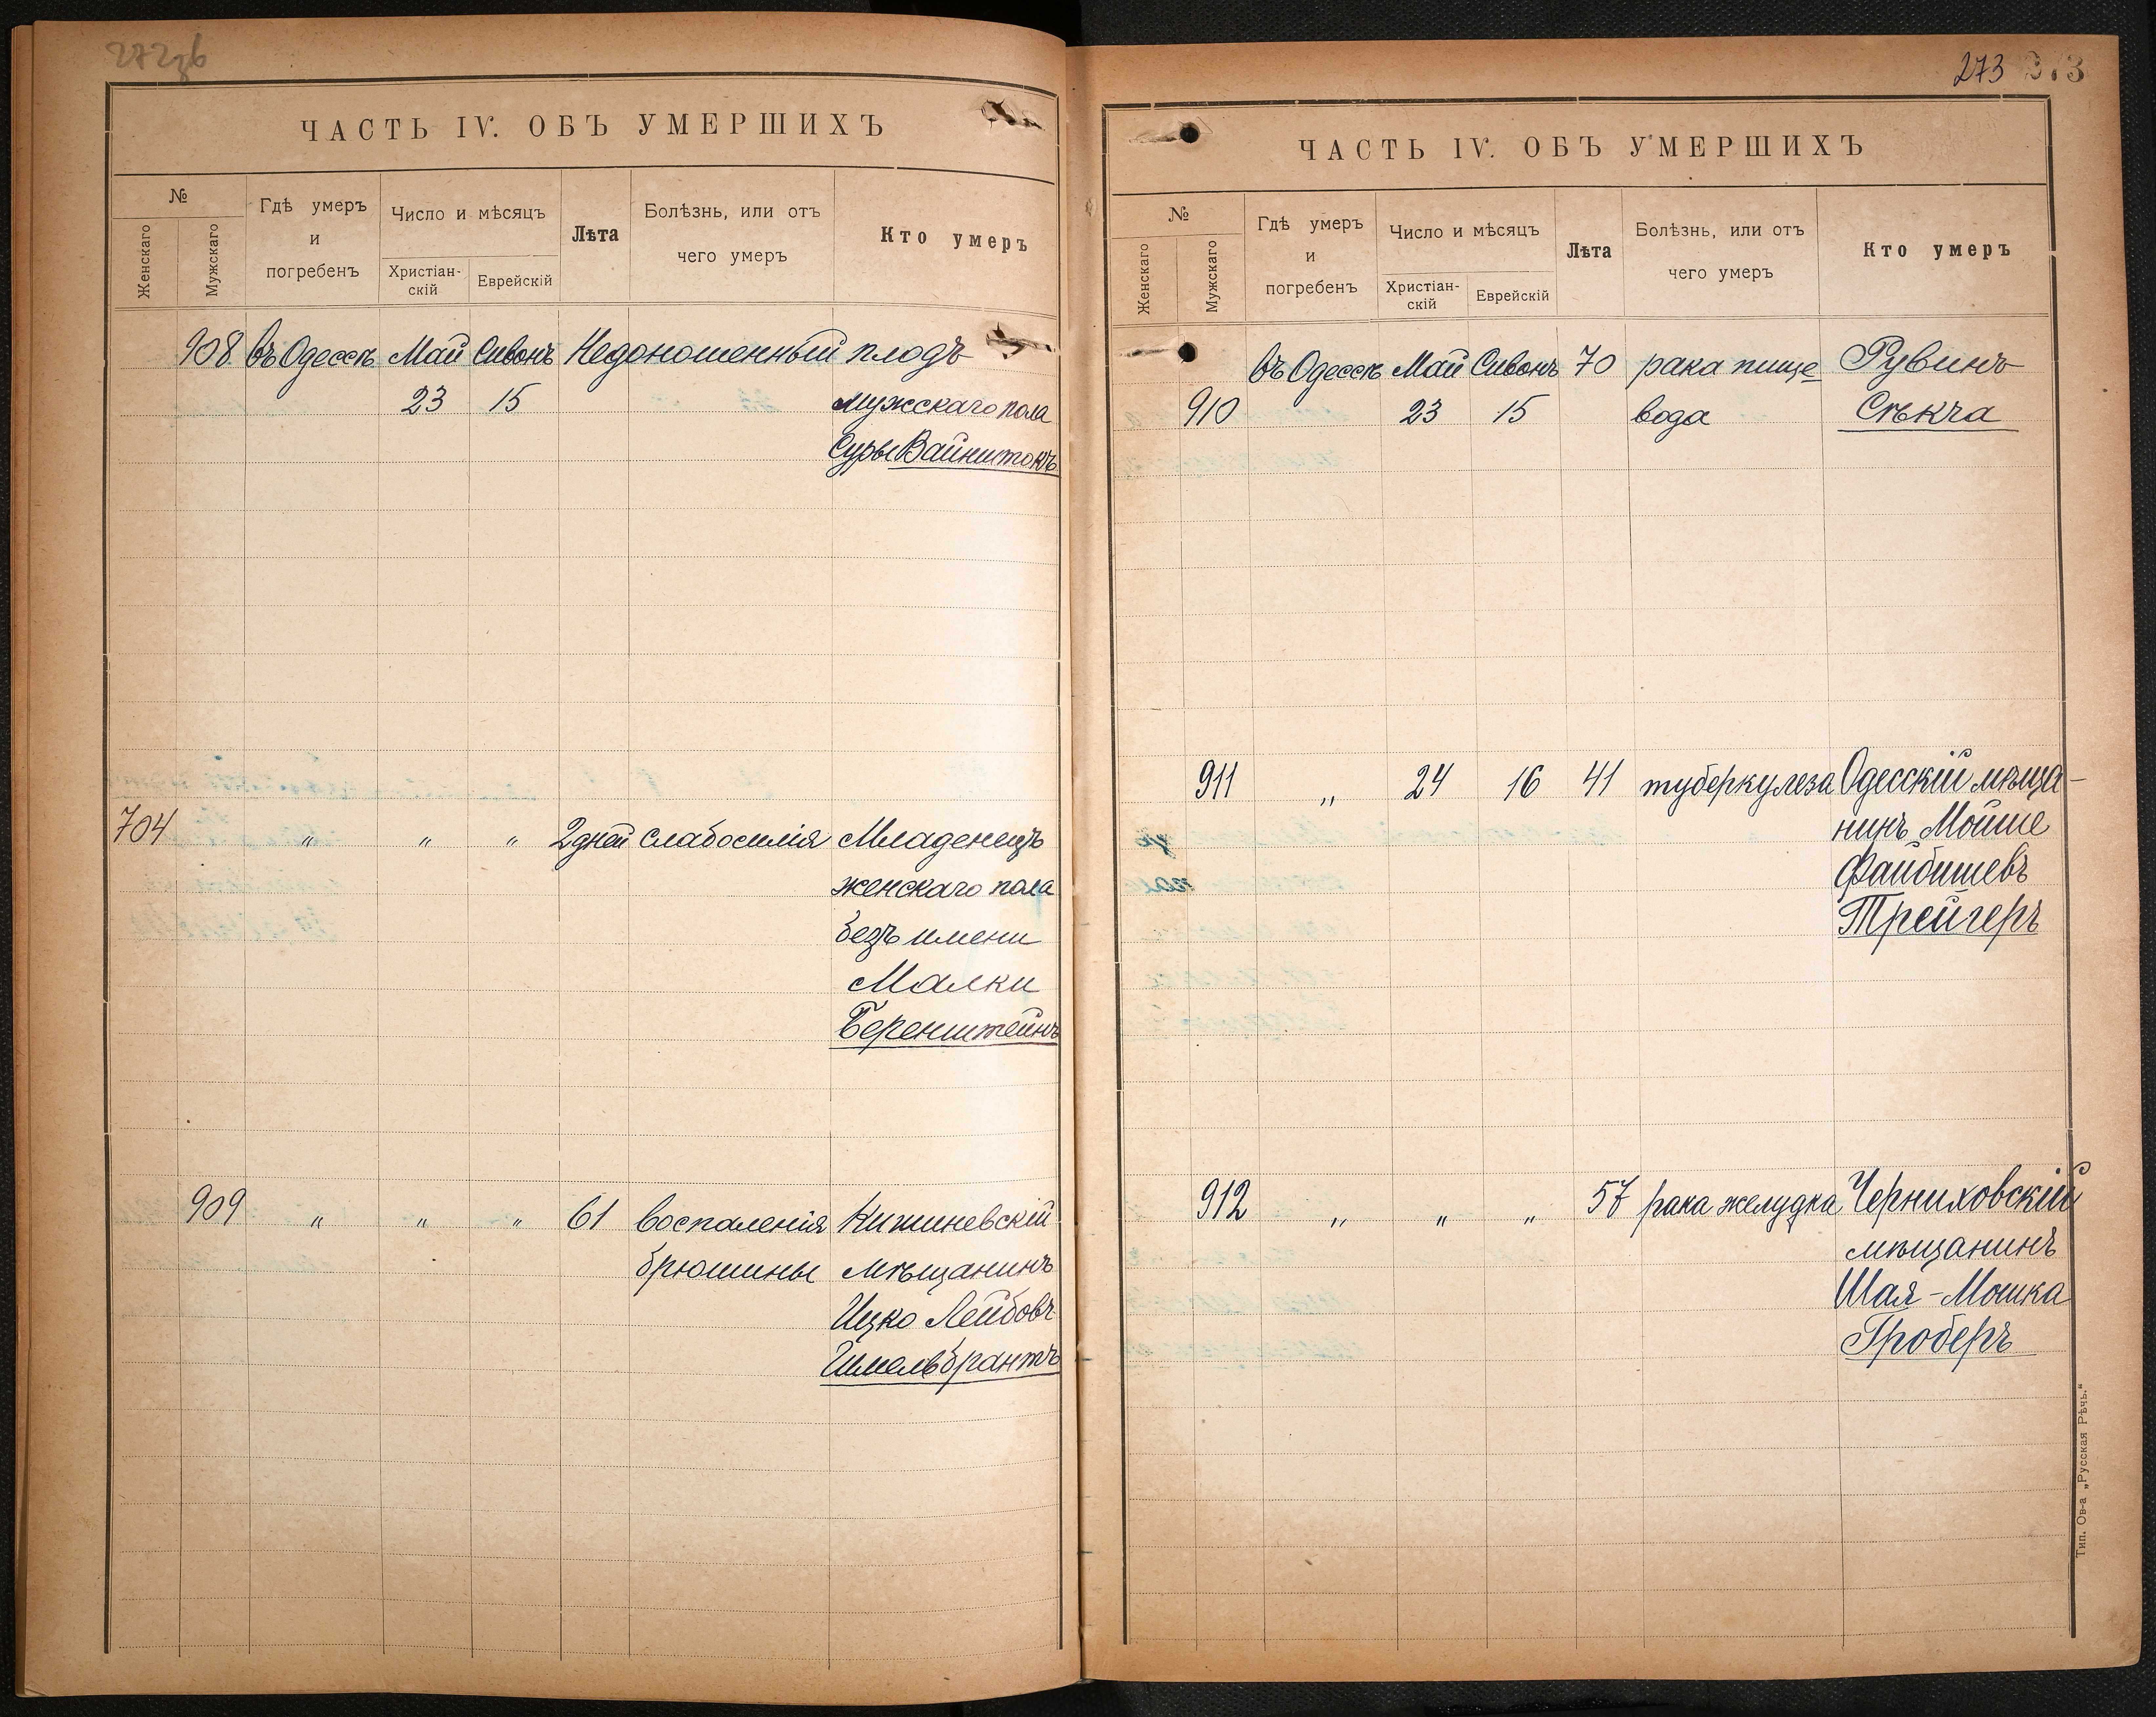 272об
ЧАСТЬ IV. ОБЪ УМЕРШИХЪ
№
Женскаго
Мужскаго
Гдѣ умеръ
и
погребенъ
Число и мѣсяцъ
Христіан-
скій
Еврейскій
Лѣта
Болѣзнь, или отъ
чего умеръ
Кто умеръ
908 въ Одессѣ Май Сивонъ Недоношенный плодъ
23 15 мужскаго пола
Суры Вайнштокъ
704 " " " 2 дней слабосилія Младенецъ
женскаго пола
безъ имени
Малки
Беренштейнъ
909 " " " 61 воспаленія Кишиневскій
брюшины мѣщанинъ
Ицко Лейбовъ
Гимельбрантъ
273 273
ЧАСТЬ IV. ОБЪ УМЕРШИХЪ
№
Женскаго
Мужскаго
Гдѣ умеръ
и
погребенъ
Число и мѣсяцъ
Христіан-
скій
Еврейскій
Лѣта
Болѣзнь, или отъ
чего умеръ
Кто умеръ
въ Одессѣ Май Сивонъ 70 рака пище Рувинъ
910 23 15 вода Сѣкча
911 " 24 16 41 туберкулеза Одесскій мѣща-
нинъ Мойше
Файбишевъ
Трейгеръ
912 " " " 57 рака желудка Черниховскій
мѣщанинъ
Шая-Мошка
Гроберъ
Тип. Ов-а „Русская Рѣчь.“